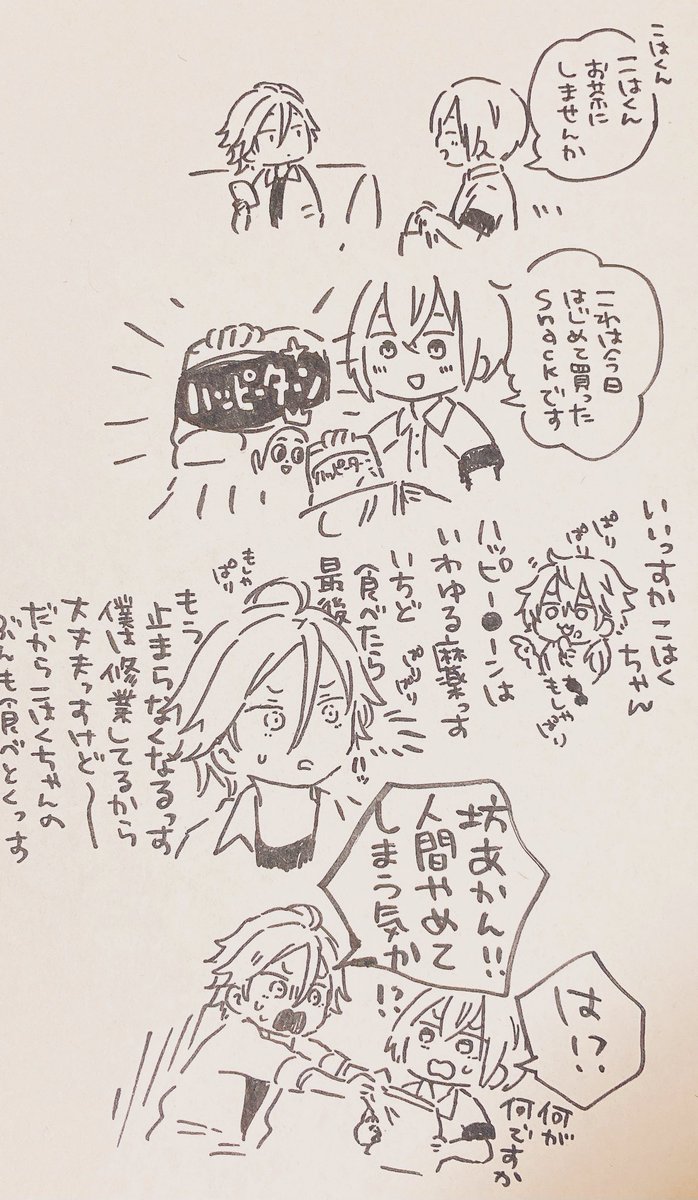 こはくん
こはくん
お茶に
しませんか
これは今日
はじめて買った
Snackです
ハッピーターン
ハッピーターン
いいっすかこはく
ちゃん
ぱり
ぱり
もしゃ
ぱり
ハッピー●ーンは
いわゆる麻薬っす
いちど
食べたら
最後
ぱり
ぱり
もしゃ
ぱり
もう
止まらなくなるっす
僕は修業してるから
大丈夫っすけど〜
だからこはくちゃんの
ぶんも食べとくっす
坊あかん!!
人間やめて
しまう気か
!?
は!?
何が
何ですか